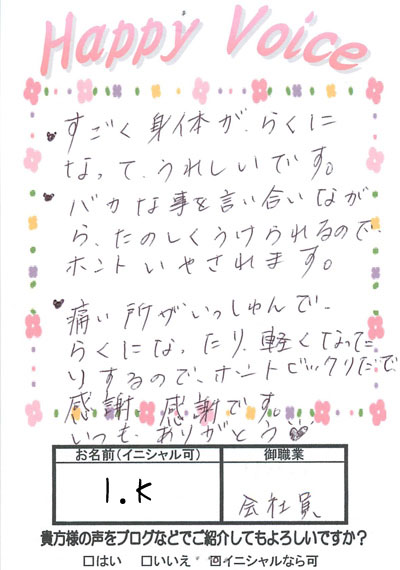 Happy Voice
すごく身体が、らくに
なって、うれしいです。
バカな事を言い合いなが
ら、たのしくうけられるので、
ホントいやされます。
痛い所がいっしゅんで、
らくになったり、軽くなって
りするので、ホントビックリだで
感謝、感謝です。
いつも、ありがとう
お名前(イニシャル可) 御職業
I.K 会社員
貴方様の声をブログなどでご紹介してもよろしいですか?
□はい □いいえ ☑イニシャルなら可